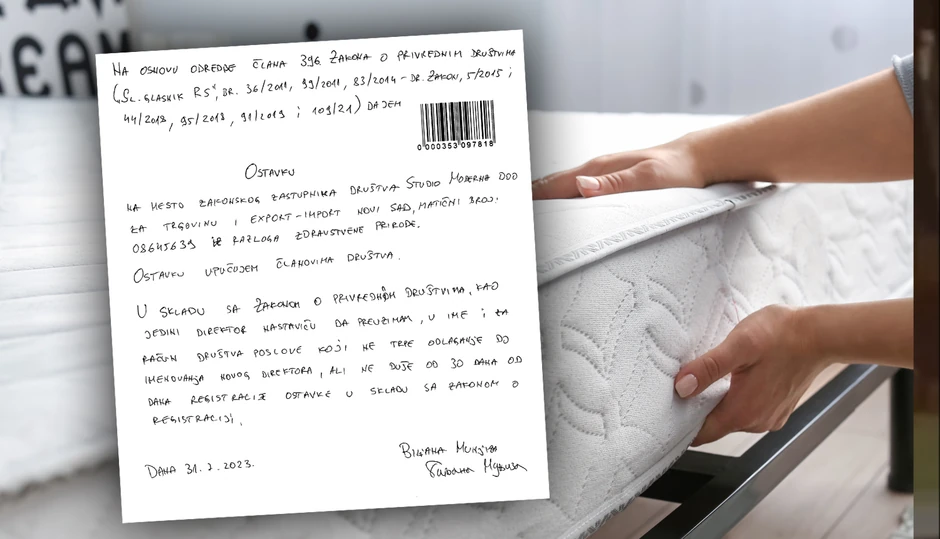 EAM
NA OSNOVU ODREDBE ČLANA 396 ZAKONA O PRIVREDNIM DRUŠTVIMA
(SL. GLASNIK RS", BR. 36/2011, 99/2011, 83/2014 - DR. ZAKON, 5/2015 i
44/2018, 95/2018, 91/2019 i 109/21) DAJEM
0 000353 097818
OSTAVKU
NA MESTO ZAKONSKOG ZASTUPNIKA DRUŠTVA STUDIO MODERNA DOO
ZA TRGOVINU I EXPORT-IMPORT NOVI SAD, MATIČNI BROJ:
08645639 IZ RAZLOGA ZDRAVSTVENE PRIRODE.
OSTAVKU UPUĆUJEM ČLANOVIMA DRUŠTVA.
U SKLADU SA ZAKONOM O PRIVREDNIM DRUŠTVIMA, KAO
JEDINI DIREKTOR NASTAVIĆU DA PREUZIMAM, U IME i ZA
RAČUN DRUŠTVA POSLOVE KOJI NE TRPE ODLAGANJE DO
IMENOVANJA NOVOG DIREKTORA, ALI NE DUŽE OD 30 DANA OD
DANA REGISTRACIJE OSTAVKE U SKLADU SA ZAKONOM O
REGISTRACIJI.
DANA 31. 7. 2023.
BILJANA MUNJIZA